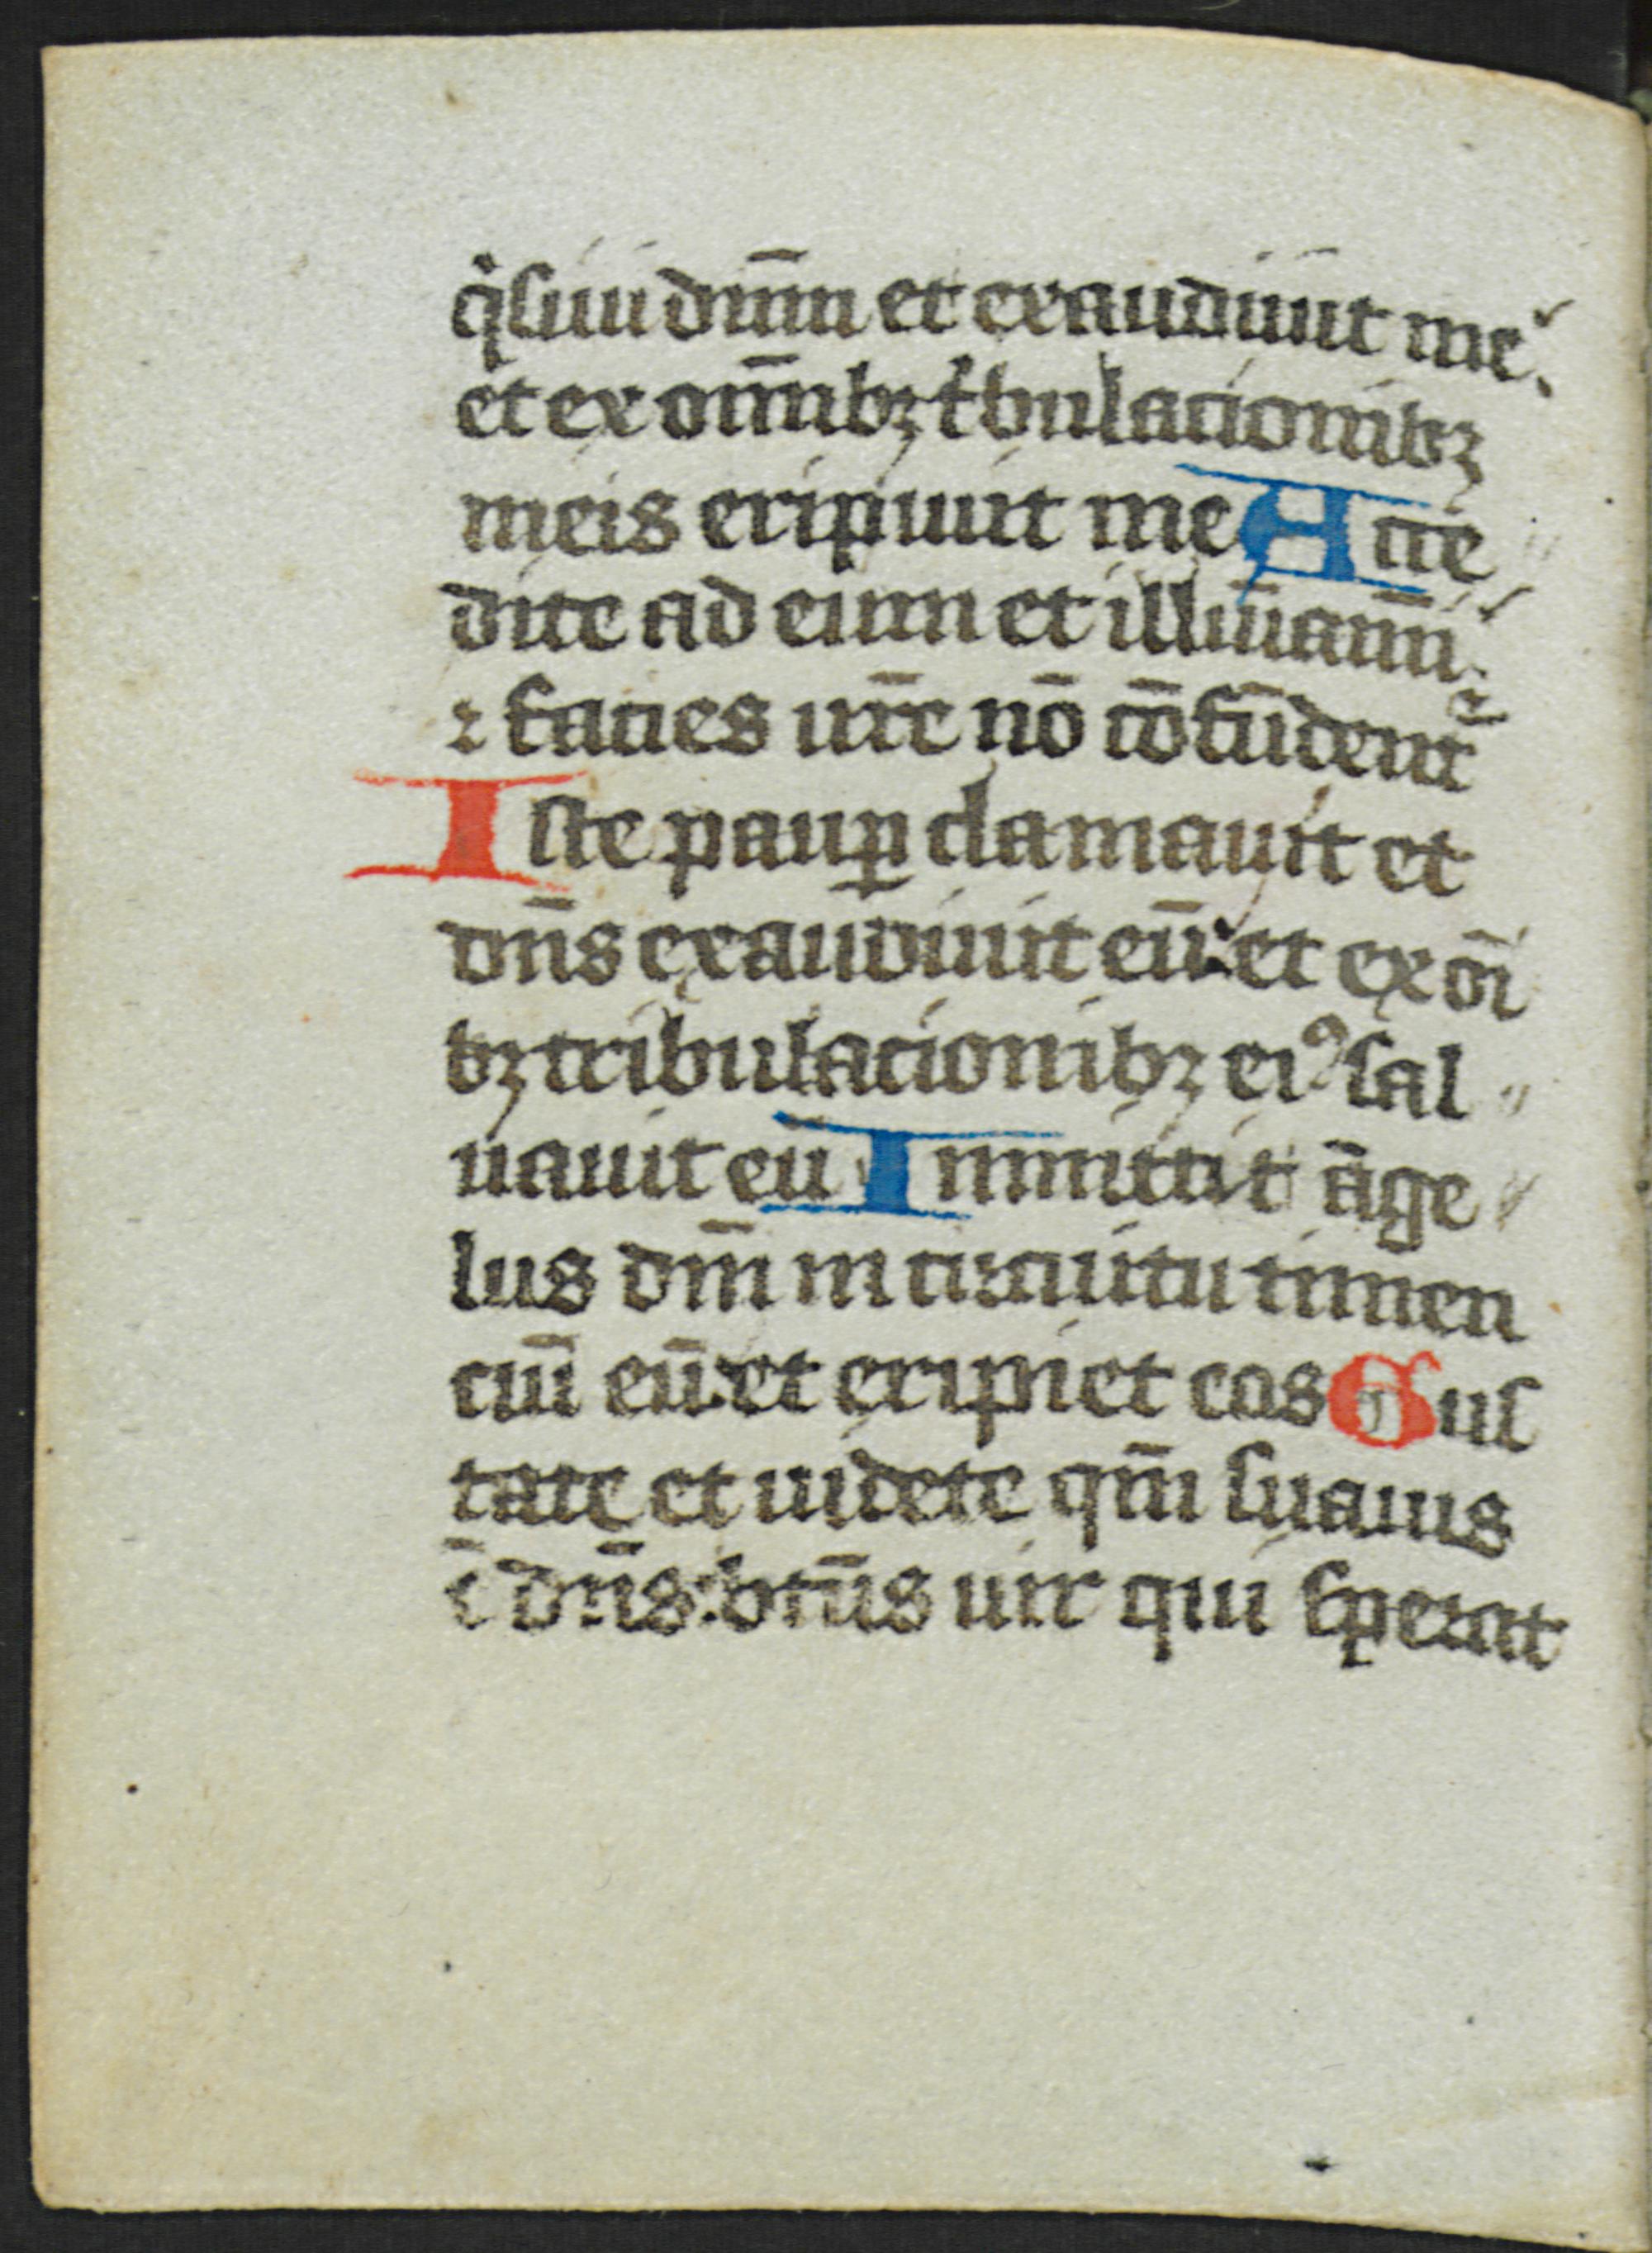 qͥsiui dn̄m et exaudiuit me:
et ex om̄ibꝫ tͥbulacionibꝫ
meis eripiuit me Accē
dite ad eum et illūīam̄i:
⁊ facies ur̄e nō cōfūdent᷑
Iste paup̲ clamauit et
dn̄s exaudiuit eū: et ex oī
bꝫ tribulacionibꝫ eiꝰ sal
uauit eū Inmittit āge
lus dn̄i in circuitu timen
ciū eū: et eripiet eos Gus
tate et uidete qm̄ suauis
ē dn̄s: btūs uir qui sperat